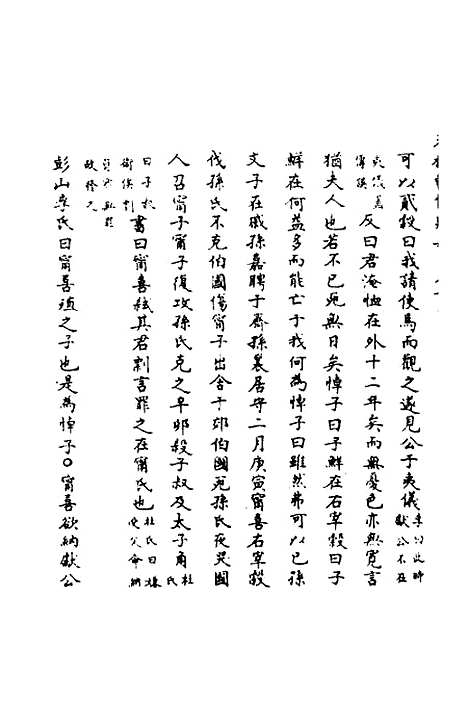 可以貳穀曰我請使焉而觀之遂見公于夷儀
獻公不在
夷儀
反曰君淹恤在外十二年矣而無憂色亦無寛言
猶夫人也若不已死無日矣悼子曰子鮮在右宰穀曰子
鮮在何益多而能亡于我何為悼子曰雖然弗可以已孫
文子在戚孫嘉聘于齊孫襄居守二月庚寅甯喜右宰穀
伐孫氏不克伯國傷甯子出舍于郊伯國死孫氏夜哭國
人召甯子甯子復攻孫氏克之辛卯殺子叔及太子角
杜氏
曰子叔
衛侯剽
書曰甯喜弑其君剽言罪之在甯氏也
杜氏曰嫌
受父命納
彭山季氏曰甯喜殖之子也是為悼子〇甯喜欲納獻公